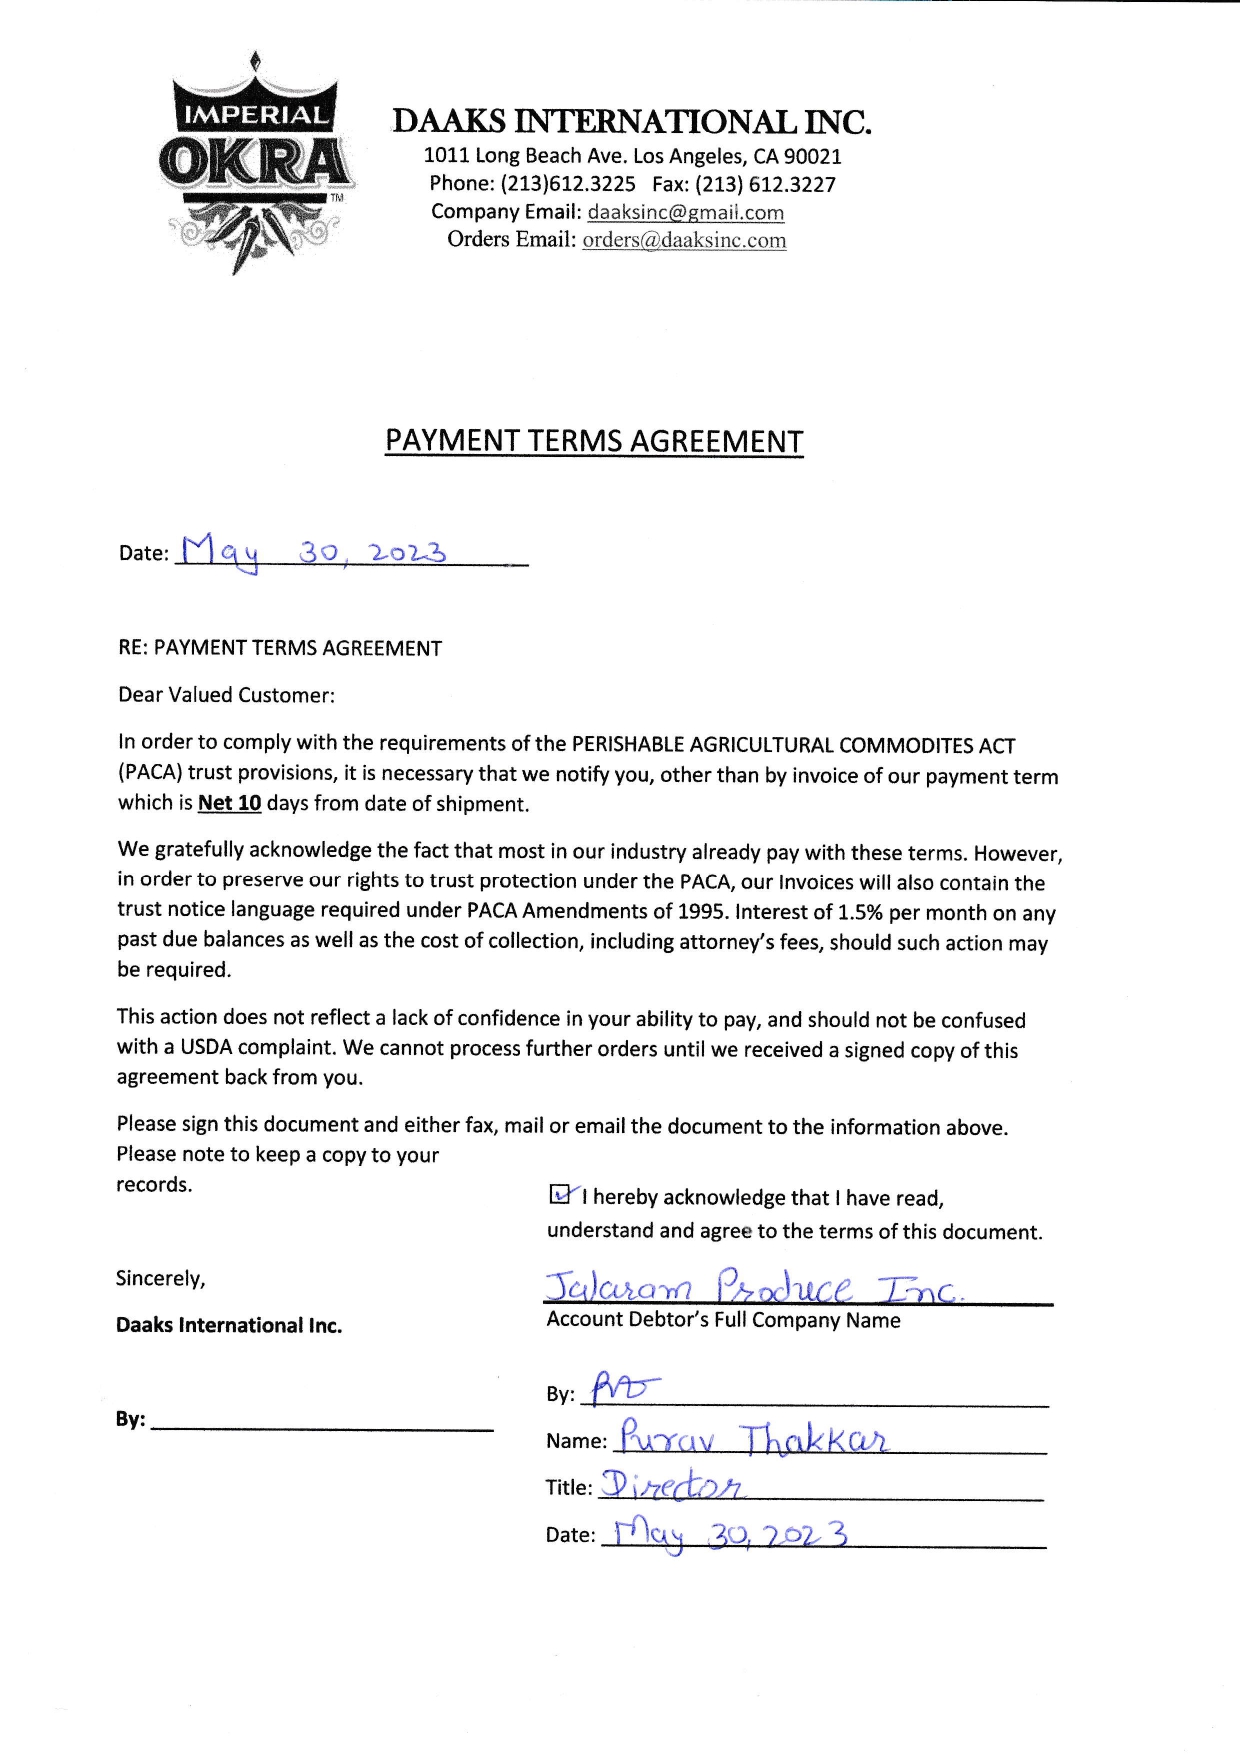 IMPERIAL
OKRA
TM
DAAKS INTERNATIONAL INC.
1011 Long Beach Ave. Los Angeles, CA 90021
Phone: (213)612.3225 Fax: (213) 612.3227
Company Email: daaksinc@gmail.com
Orders Email: orders@daaksinc.com
PAYMENT TERMS AGREEMENT
Date: May 30, 2023
RE: PAYMENT TERMS AGREEMENT
Dear Valued Customer:
In order to comply with the requirements of the PERISHABLE AGRICULTURAL COMMODITES ACT
(PACA) trust provisions, it is necessary that we notify you, other than by invoice of our payment term
which is Net 10 days from date of shipment.
We gratefully acknowledge the fact that most in our industry already pay with these terms. However,
in order to preserve our rights to trust protection under the PACA, our Invoices will also contain the
trust notice language required under PACA Amendments of 1995. Interest of 1.5% per month on any
past due balances as well as the cost of collection, including attorney's fees, should such action may
be required.
This action does not reflect a lack of confidence in your ability to pay, and should not be confused
with a USDA complaint. We cannot process further orders until we received a signed copy of this
agreement back from you.
Please sign this document and either fax, mail or email the document to the information above.
Please note to keep a copy to your
records.
I hereby acknowledge that I have read,
understand and agree to the terms of this document.
Sincerely,
Jalaram Produce Inc.
Account Debtor's Full Company Name
Daaks International Inc.
By:
By:
Name: Purav Thakkar
Title: Director
Date: May 30, 2023